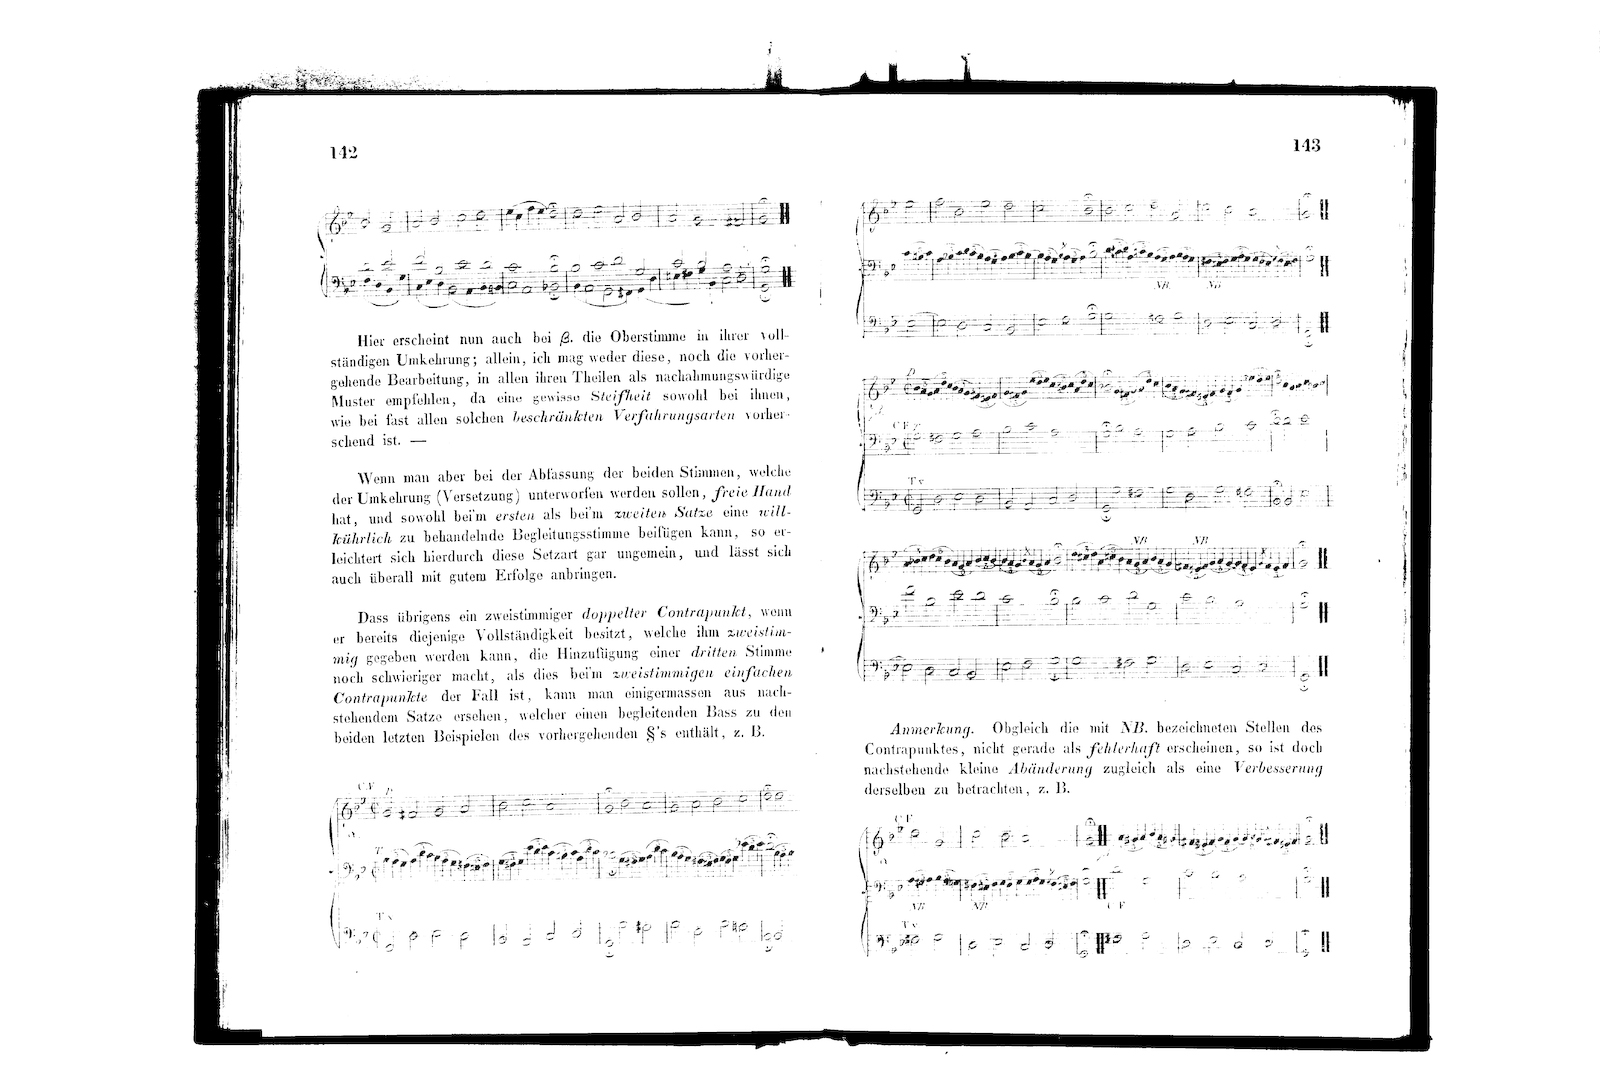 142
Hier erscheint nun auch bei β. die Oberstimme in ihrer voll-
ständigen Umkehrung; allein, ich mag weder diese, noch die vorher-
gehende Bearbeitung, in allen ihren Theilen als nachahmungswürdige
Muster empfehlen, da eine gewisse Steifheit sowohl bei ihnen,
wie bei fast allen solchen beschränkten Verfahrungsarten vorher-
schend ist. —
Wenn man aber bei der Abfassung der beiden Stimmen, welche
der Umkehrung (Versetzung) unterworfen werden sollen, freie Hand
hat, und sowohl bei'm ersten als bei'm zweiten Satze eine will-
kührlich zu behandelnde Begleitungsstimme beifügen kann, so er-
leichtert sich hierdurch diese Setzart gar ungemein, und lässt sich
auch überall mit gutem Erfolge anbringen.
Dass übrigens ein zweistimmiger doppelter Contrapunkt, wenn
er bereits diejenige Vollständigkeit besitzt, welche ihm zweistim-
mig gegeben werden kann, die Hinzufügung einer dritten Stimme
noch schwieriger macht, als dies bei'm zweistimmigen einfachen
Contrapunkte der Fall ist, kann man einigermassen aus nach-
stehendem Satze ersehen, welcher einen begleitenden Bass zu den
beiden letzten Beispielen des vorhergehenden §'s enthält, z. B.
C F
T
T v
143
NB. NB
C F
T v
NB NB
Anmerkung. Obgleich die mit NB. bezeichneten Stellen des
Contrapunktes, nicht gerade als fehlerhaft erscheinen, so ist doch
nachstehende kleine Abänderung zugleich als eine Verbesserung
derselben zu betrachten, z. B.
C F
NB NB C F
T v